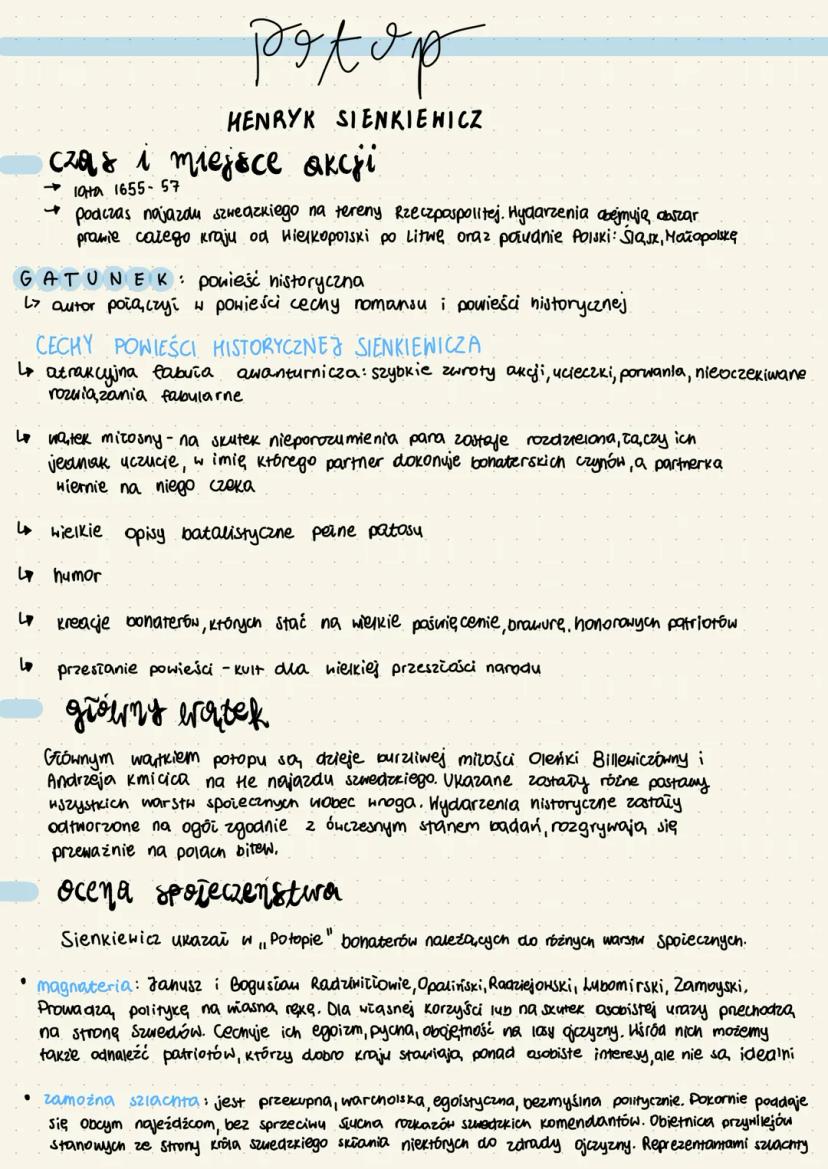 potop
HENRYK SIENKIEWICZ
czas i miejsce akcji
→ lata 1655-57
→ podczas najazdu szwedzkiego na tereny Rzeczpospolitej. Wydarzenia obejmują obszar
prawie całego kraju od Wielkopolski po Litwę oraz południe Polski: Śląsk, Małopolskę
GATUNEK: powieść historyczna
↳ autor połączył w powieści cechy romansu i powieści historycznej
CECHY POWIEŚCI HISTORYCZNEJ SIENKIEWICZA
↳ atrakcyjna fabuła awanturnicza: szybkie zwroty akcji, ucieczki, porwania, nieoczekiwane
rozwiązania fabularne
↳ wątek miłosny - na skutek nieporozumienia para zostaje rozdzielona, łączy ich
jednak uczucie, w imię którego partner dokonuje bohaterskich czynów, a partnerka
wiernie na niego czeka
↳ wielkie opisy batalistyczne pełne patosu
↳ humor
↳ kreacje bohaterów, których stać na wielkie poświęcenie, brawurę, honorowych patriotów
↳ przesłanie powieści - kult dla wielkiej przeszłości narodu
główny wątek
Głównym wątkiem potopu są dzieje burzliwej miłości Oleńki Billewiczówny i
Andrzeja Kmicica na tle najazdu szwedzkiego. Ukazane zostały różne postawy
wszystkich warstw społecznych wobec wroga. Wydarzenia historyczne zostały
odtworzone na ogół zgodnie z ówczesnym stanem badań, rozgrywają się
przeważnie na polach bitew.
ocena społeczeństwa
Sienkiewicz ukazał w „Potopie" bohaterów należących do różnych warstw społecznych.
• magnateria: Janusz i Bogusław Radziwiłłowie, Opaliński, Radziejowski, Lubomirski, Zamoyski,
Prowadzą politykę na własną rękę. Dla własnej korzyści lub na skutek osobistej urazy przechodzą
na stronę Szwedów. Cechuje ich egoizm, pycha, obojętność na losy ojczyzny. Wśród nich możemy
także odnaleźć patriotów, którzy dobro kraju stawiają ponad osobiste interesy, ale nie są idealni
• zamożna szlachta: jest przekupna, warcholska, egoistyczna, bezmyślna politycznie. Pokornie poddaje
się obcym najeźdźcom, bez sprzeciwu słucha rozkazów szwedzkich komendantów. Obietnica przywilejów
stanowych ze strony króla szwedzkiego skłania niektórych do zdrady ojczyzny. Reprezentantami szlachty